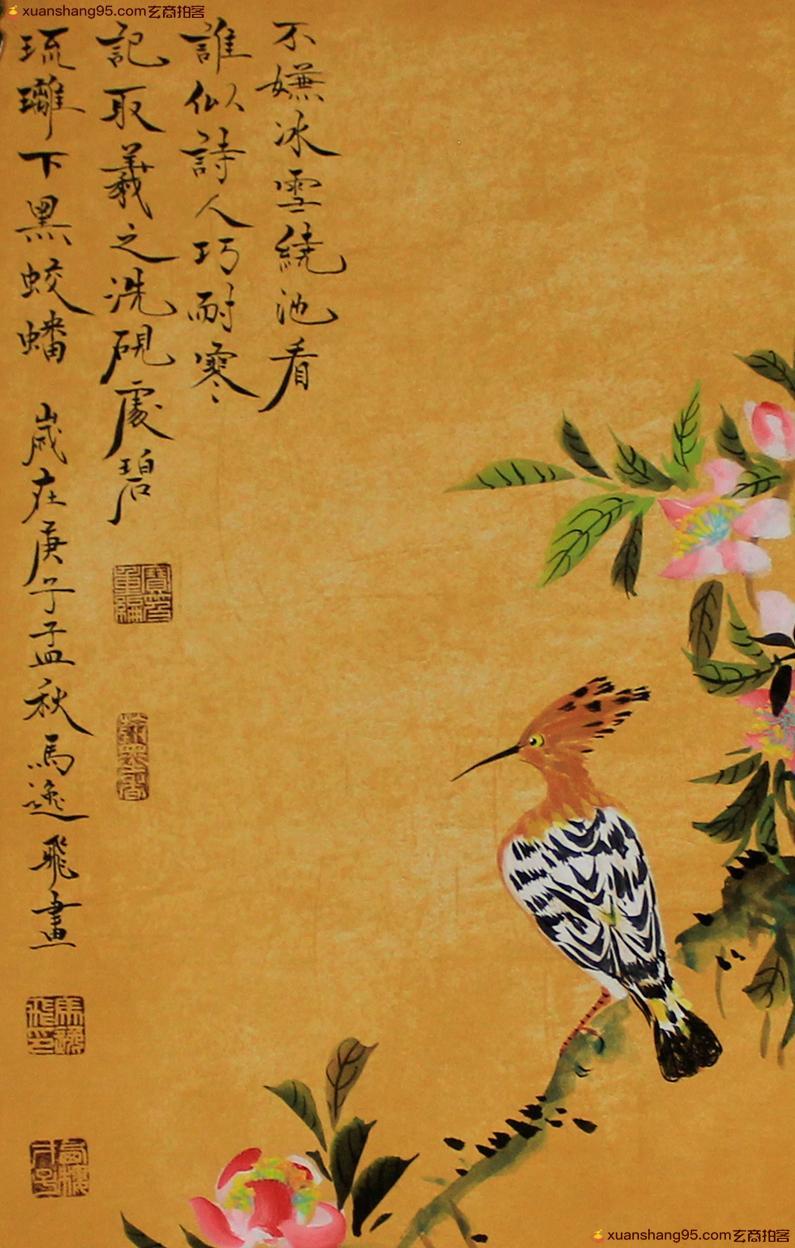 xuanshang95.com玄商拍客
不嫌冰雪繞池看
誰似詩人巧耐寒
記取羲之洗硯處碧
琉璃下黑蛟蟠 歲在庚子孟秋馬逸飛畫
xuanshang95.com玄商拍客